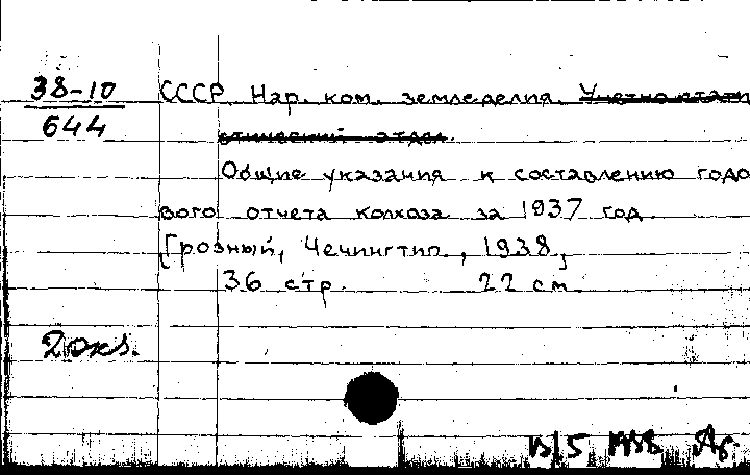 38-10 СССР. Нар. ком. земледелия. Учетно-стати
644
стический отдел.
Общие указания к составлению годо
вого отчета колхоза за 1937 год.
[Грозный, Чечингтип., 1938,
36 стр. 22 см.
2 экз.